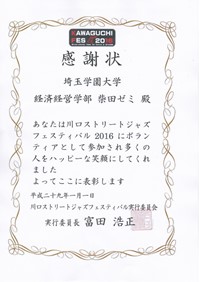 KAWAGUCHI
FES 2016
感謝状
埼玉学園大学
経済経営学部 柴田ゼミ 殿
あなたは川口ストリートジャズ
フェスティバル 2016 にボラン
ティアとして参加され多くの
人をハッピーな笑顔にしてくれ
ました
よってここに表彰します
平成二十九年一月一日
川口ストリートジャズフェスティバル実行委員会
実行委員長 富田 浩正